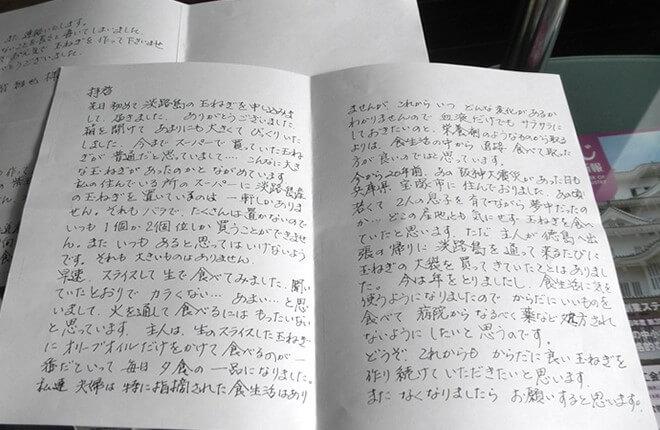 また 連絡いたします。
ないことを長々と書いてしまいました。
玉ねぎを作って下さいませ
うございました。
拝啓
先日 初めて 淡路島の玉ねぎを申し込みま
して、届きました。ありがとうございました
箱を開けて あまりにも大きくて びっくりいた
しました。今までスーパーで買っていた玉ね
ぎが 普通だと思っていまして… こんなに大き
な玉ねぎがあったのかと ながめています
私の住んでいる所のスーパーに 淡路島産
の玉ねぎを 置いているのは 一軒しかありま
せん。それも バラで、たくさんは置かないので
いつも 1個か2個位しか買うことができませ
ん。また いつも あると思ってはいけないよう
です。それも 大きいものはありません。
早速、スライスして 生で 食べてみました。聞い
ていたとおりで カラくない… あまい… と思
いまして、火を通して食べるには もったいない
と思っています。主人は、生のスライスした玉ねぎ
に オリーブオイルだけをかけて 食べるのが一
番だといって 毎日 夕食の一品になりました。
私達 夫婦は 特に指摘された食生活はあり
ませんが これから いつ どんな変化があるか
わかりませんので 血液だけでも サラサラに
しておきたいのと、栄養剤のようなものから取る
よりは、食生活の中から 直接 食べて取った
方が良いのではと思っています。
今から20年前、あの阪神大震災があった日も
兵庫県 宝塚市に 住んでおりました。あの頃は
若くて 2人の息子を育てながら 夢中だったの
か… どこの産地とも 気にせず 玉ねぎを食べ
ていたと思います。ただ 主人が 徳島へ出
張の帰りに 淡路島を通って来るたびに
玉ねぎの大袋を買ってきていたことはありまし
た。今は年をとりましたし、食生活に気を
使うようになりましたので からだにいいものを
食べて 病院から なるべく薬など 処方され
ないようにしたいと思うのです。
どうぞ これからも からだに良い玉ねぎを
作り続けていただきたいと思います。
また なくなりましたら お願いすると思います。